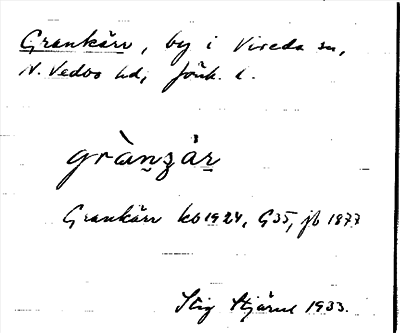 Grankärr, by i Vireda sn,
N. Vedbo hd, Jönk. l.
grànzàr
Grankärr kb 1924, G35, jb 1877
Stig Stjärne 1933.